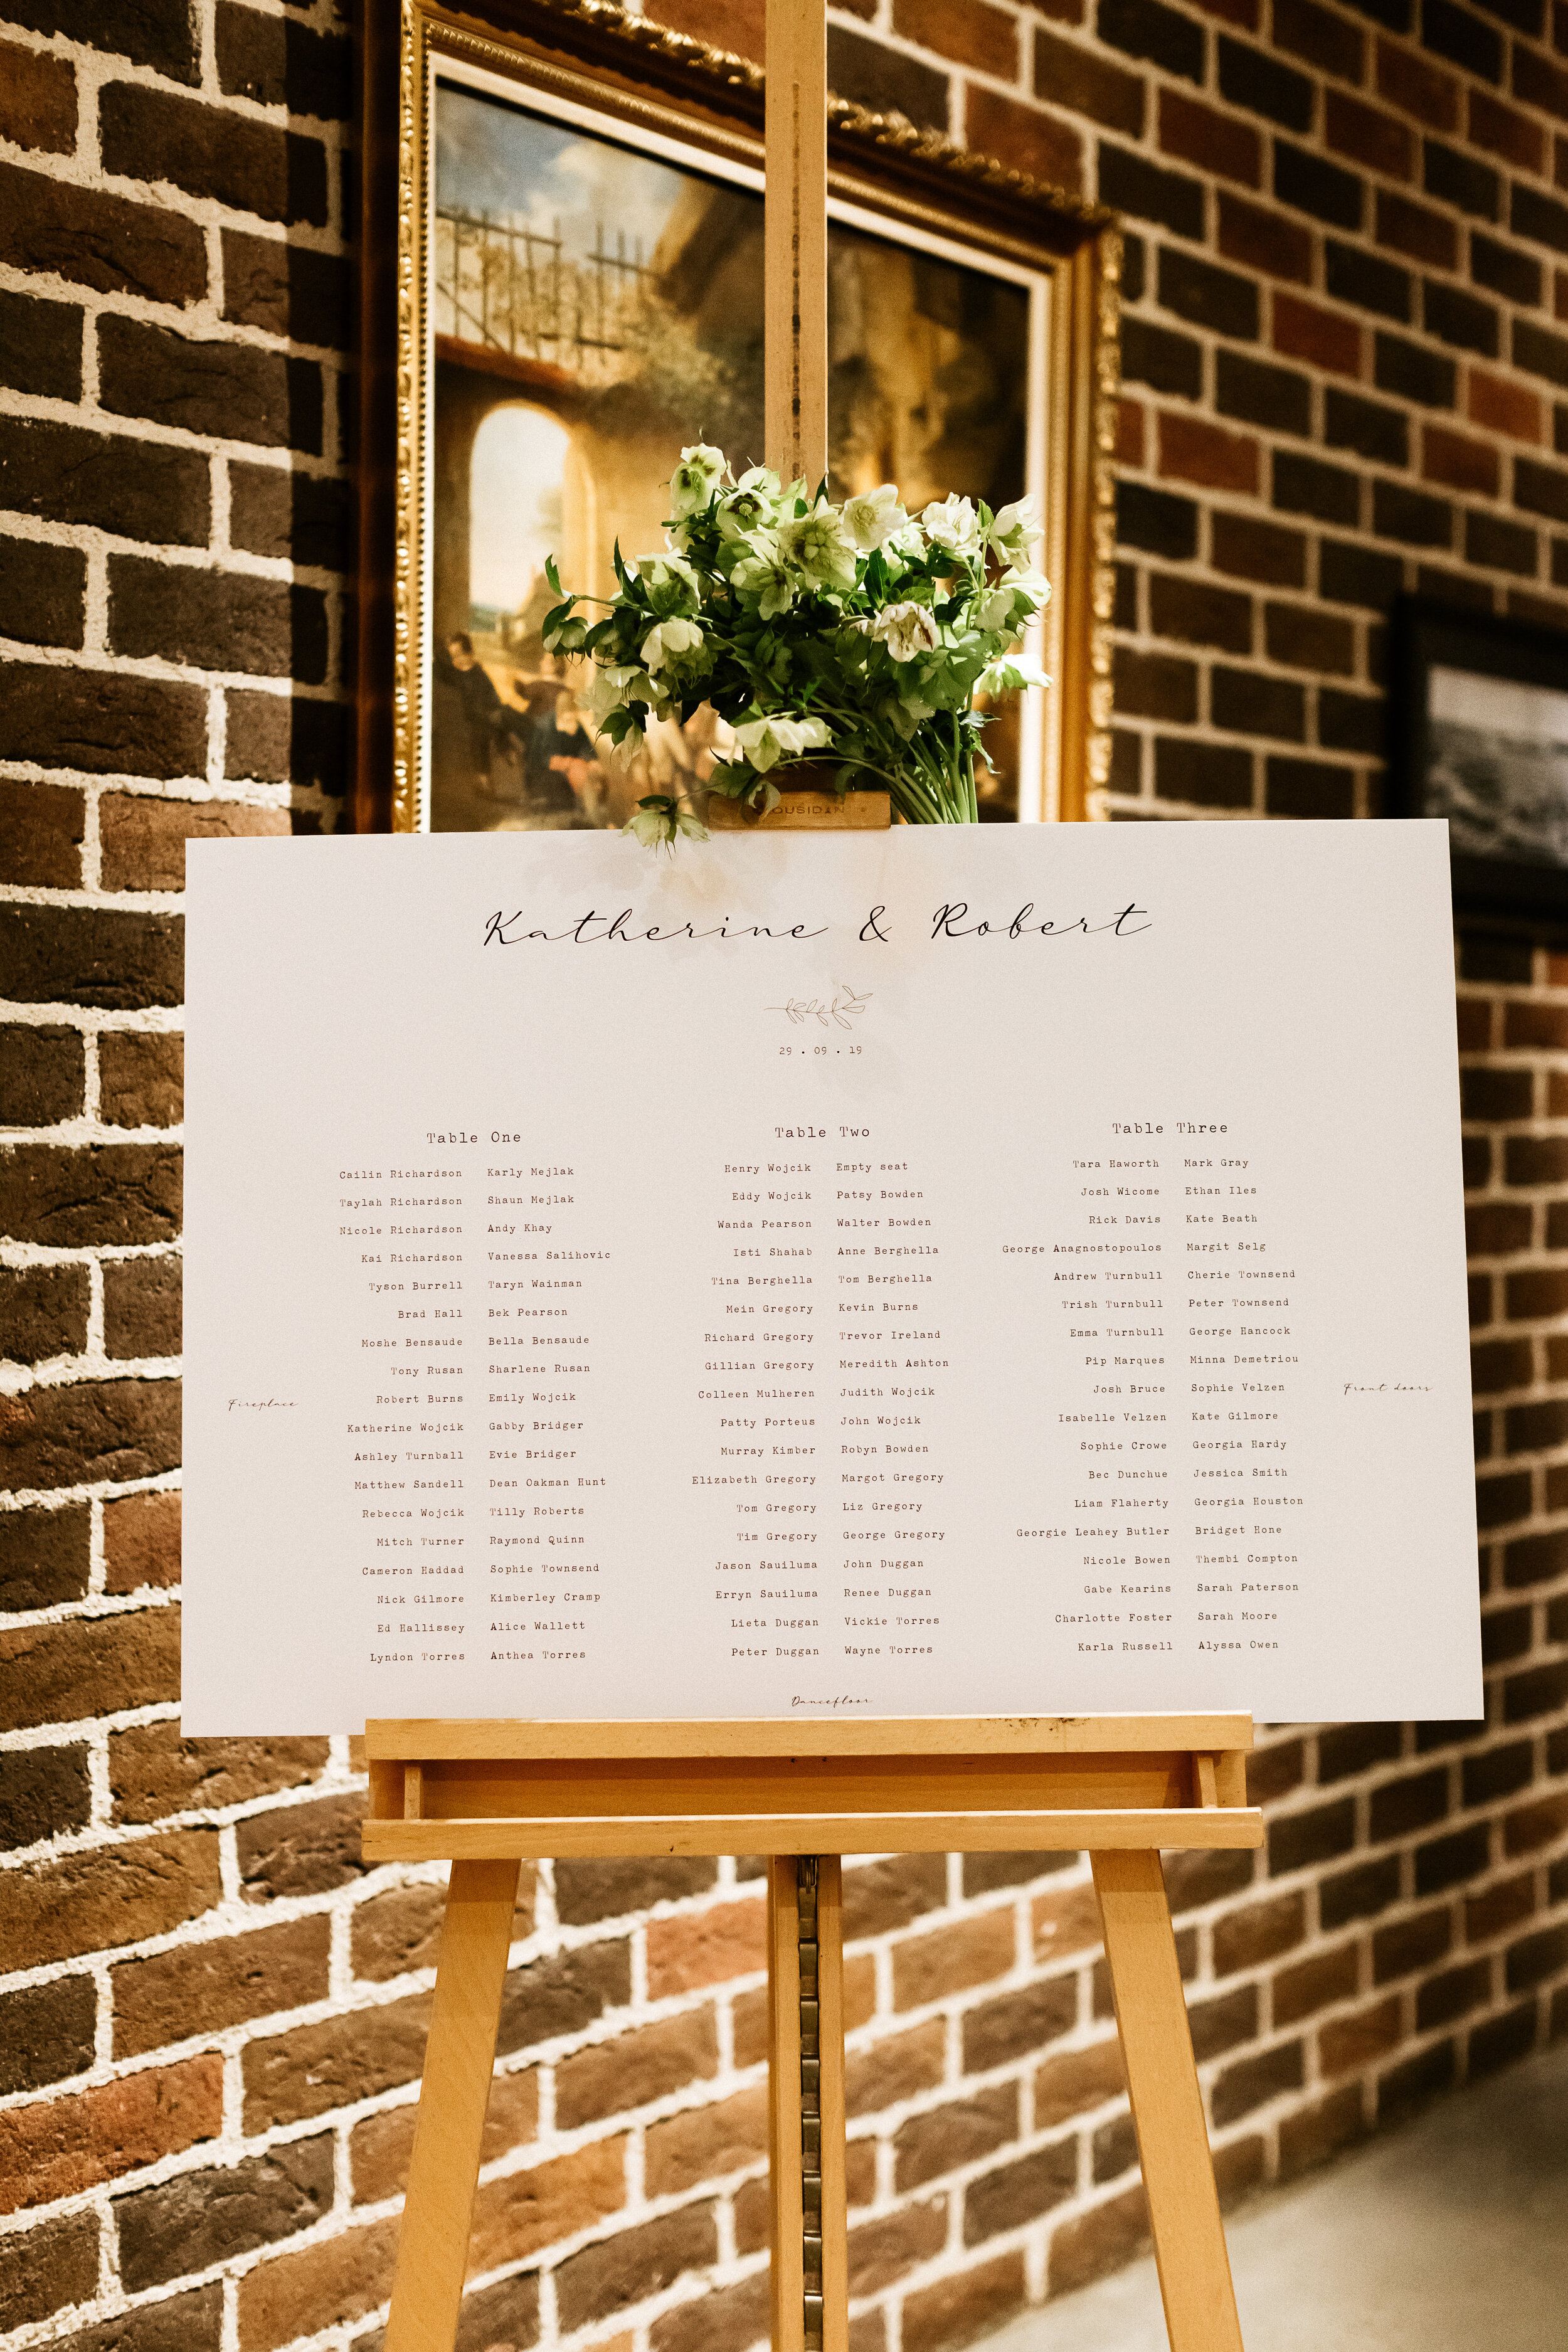 Katherine & Robert
29 . 09 . 19
Table One
Cailin Richardson Karly Mejlak
Taylah Richardson Shaun Mejlak
Nicole Richardson Andy Khay
Kai Richardson Vanessa Salihovic
Tyson Burrell Taryn Wainman
Brad Hall Bek Pearson
Moshe Bensaude Bella Bensaude
Tony Rusan Sharlene Rusan
Robert Burns Emily Wojcik
Katherine Wojcik Gabby Bridger
Ashley Turnball Evie Bridger
Matthew Sandell Dean Oakman Hunt
Rebecca Wojcik Tilly Roberts
Mitch Turner Raymond Quinn
Cameron Haddad Sophie Townsend
Nick Gilmore Kimberley Cramp
Ed Hallissey Alice Wallett
Lyndon Torres Anthea Torres
Table Two
Henry Wojcik Empty seat
Eddy Wojcik Patsy Bowden
Wanda Pearson Walter Bowden
Isti Shahab Anne Berghella
Tina Berghella Tom Berghella
Mein Gregory Kevin Burns
Richard Gregory Trevor Ireland
Gillian Gregory Meredith Ashton
Colleen Mulheren Judith Wojcik
Patty Porteus John Wojcik
Murray Kimber Robyn Bowden
Elizabeth Gregory Margot Gregory
Tom Gregory Liz Gregory
Tim Gregory George Gregory
Jason Sauiluma John Duggan
Erryn Sauiluma Renee Duggan
Lieta Duggan Vickie Torres
Peter Duggan Wayne Torres
Table Three
Tara Haworth Mark Gray
Josh Wicome Ethan Iles
Rick Davis Kate Beath
George Anagnostopoulos Margit Selg
Andrew Turnbull Cherie Townsend
Trish Turnbull Peter Townsend
Emma Turnbull George Hancock
Pip Marques Minna Demetriou
Josh Bruce Sophie Velzen
Isabelle Velzen Kate Gilmore
Sophie Crowe Georgia Hardy
Bec Dunchue Jessica Smith
Liam Flaherty Georgia Houston
Georgie Leahey Butler Bridget Hone
Nicole Bowen Thembi Compton
Gabe Kearins Sarah Paterson
Charlotte Foster Sarah Moore
Karla Russell Alyssa Owen
Fireplace
Front doors
Dancefloor